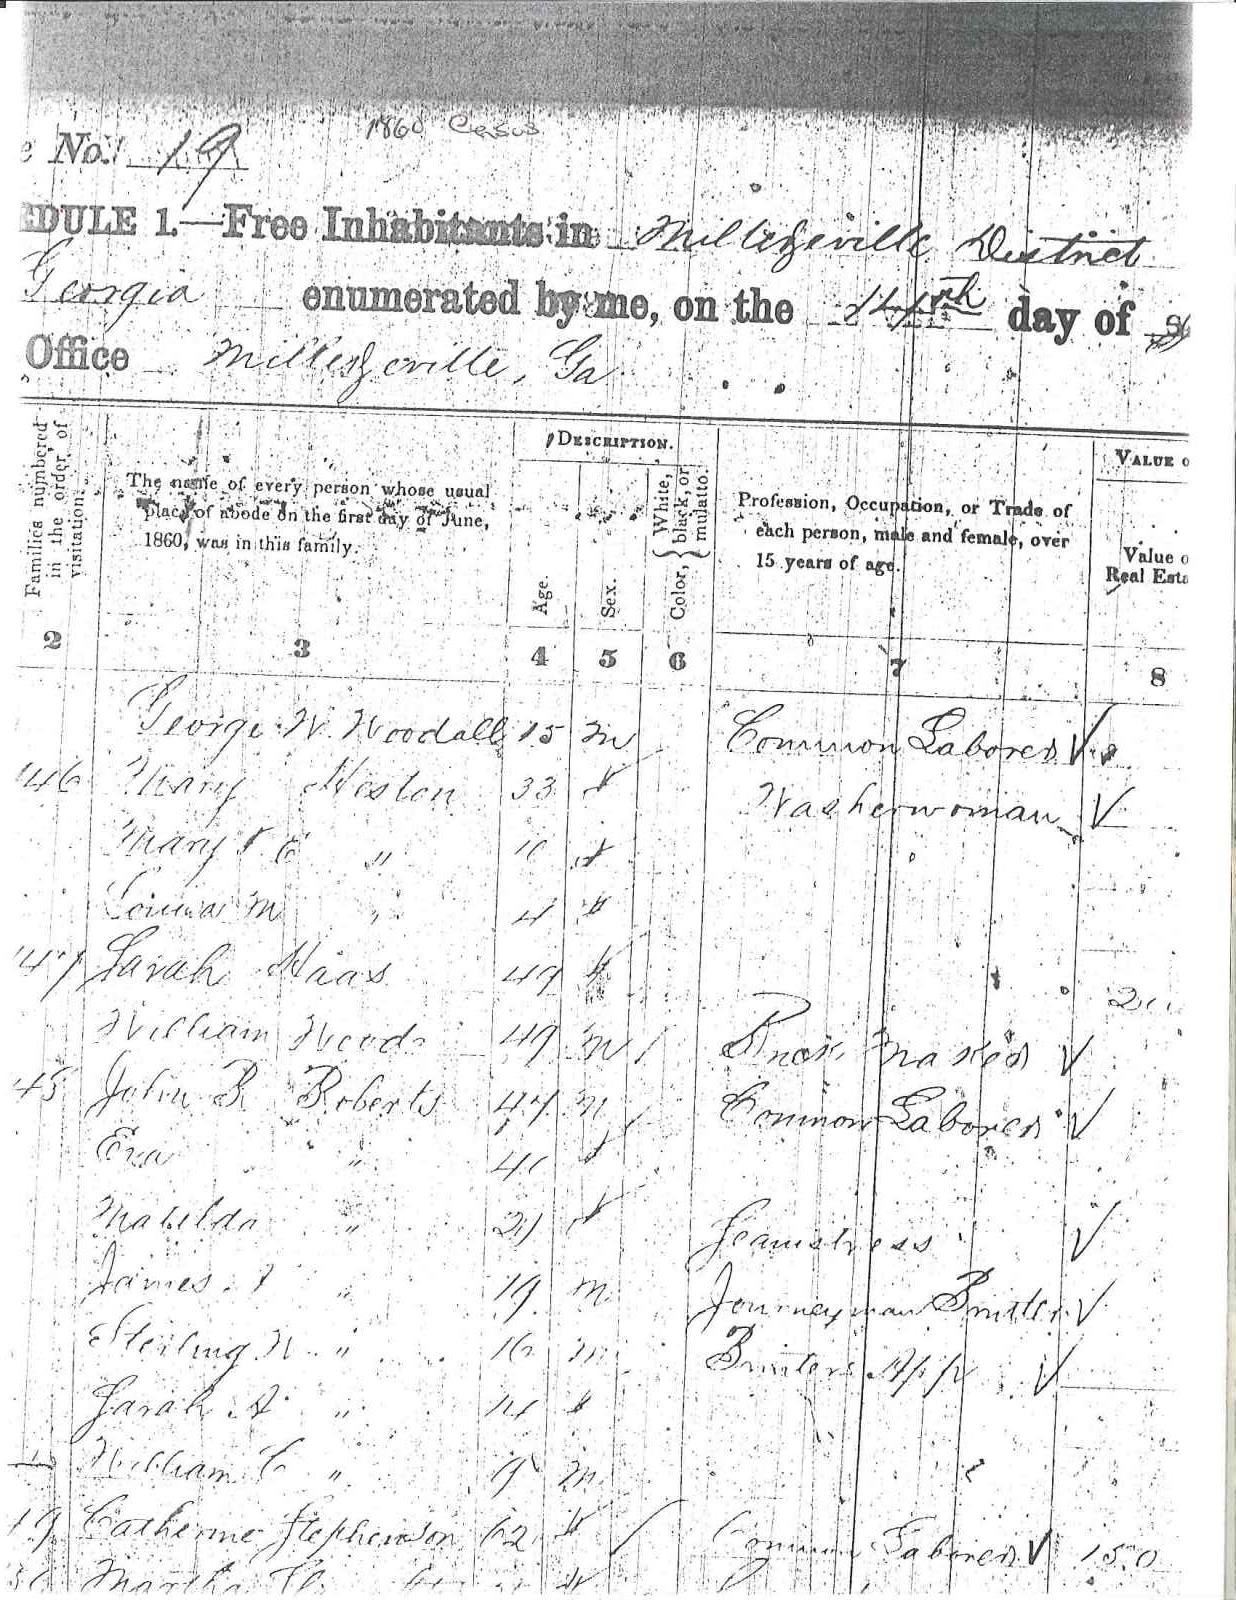 1860 Census
No. 19
DULE 1.—Free Inhabitants in Milledgeville District
Georgia enumerated by me, on the 14th day of
Office Milledgeville, Ga
Families numbered in the order of visitation.
The name of every person whose usual
place of abode on the first day of June,
1860, was in this family.
DESCRIPTION.
Age.
Sex.
Color, { White, black, or mulatto.
Profession, Occupation, or Trade of
each person, male and female, over
15 years of age.
VALUE O
Value o
Real Esta
2 3 4 5 6 7 8
George W. Woodall 15 m Common Laborer √
146 Mary 33 f Washerwoman √
Mary E " f
M " 4 f
147 Sarah Haas 49 f
William Woods 49 m / Brick Maker √
John B Roberts 47 m / Common Laborer √
" f
Matilda " 21 f Seamstress √
James " 19 m Journeyman Printer √
Sterling W " 16 m Printers App √
Sarah A " 14 f
William C " 9 m
Catherine Stephenson 62 f / Common Laborer √ 150
Martha